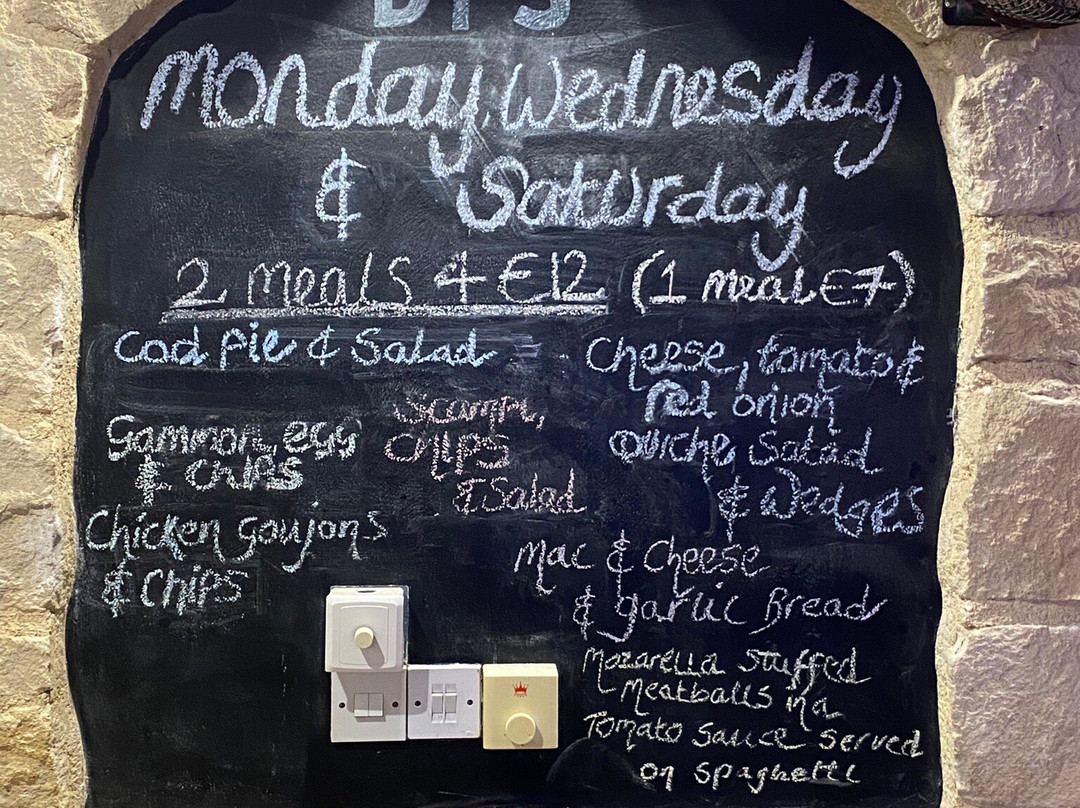 Monday, Wednesday
& Saturday
2 meals 4 €12 (1 meal €7)
Cod Pie & Salad
Gammon, egg
& chips
Chicken goujons
& chips
Scampi,
Chips
& Salad
Cheese, tomato &
Red onion
Quiche, Salad
& Wedges
Mac & Cheese
& garlic Bread
Mozarella Stuffed
Meatballs in a
Tomato Sauce Served
on Spaghetti